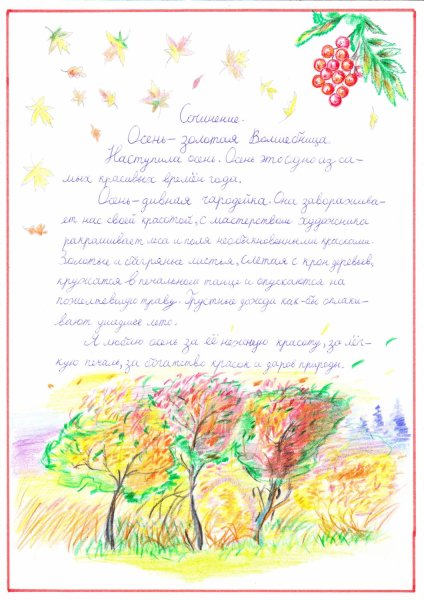 Сочинение.
Осень- золотая Волшебница.
Наступила осень. Осень это одно из са-
мых красивых времён года.
Осень- дивная чародейка. Она заворажива-
ет нас своей красотой, с мастерством художника
ракрашивает леса и поля необыкновенными красками.
Золотые и багряные листья, слетая с крон деревьев,
кружатся в печальном танце и опускаются на
пожелтевшую траву. Грустные дожди как-бы оплаки-
вают ушедшее лето.
Я люблю осень за её нежную красоту, за лёг-
кую печаль, за богатство красок и даров природы.